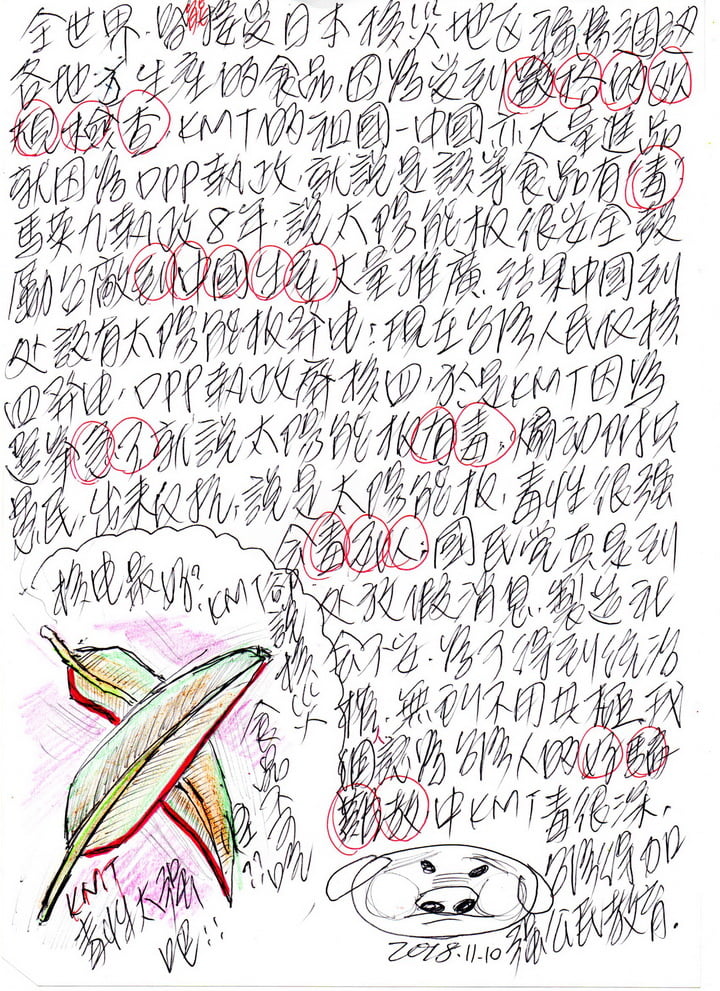 全世界,皆能接受日本核災地區擴增調
各地方生產的食品,因為受到嚴格的
檢查 KMT的祖國-中國亦大量進品
就因為DPP執政,就說是該等食品有"毒"
馬英九執政8年,說太陽能板很安全鼓
勵台廠到中國生產大量推廣,結果中國到
处設有太陽能板發电;現在台灣人民反核
四發电,DPP執政廢核四,於是KMT因為
選舉 就說太陽能板有毒,煽動
愚民,出來反抗,說是太陽能板,毒性很强
會毒死人.國民党真是到
处放假消息.製造社
會不安.為了得到統治
權,無所不用其極,我
們認為台灣人的好騙
難教,中KMT毒很深,
台灣得加
强公民教育.
2018.11.10
核电最好?KMT
說核災食品
KMT
毒性太强
吧!!